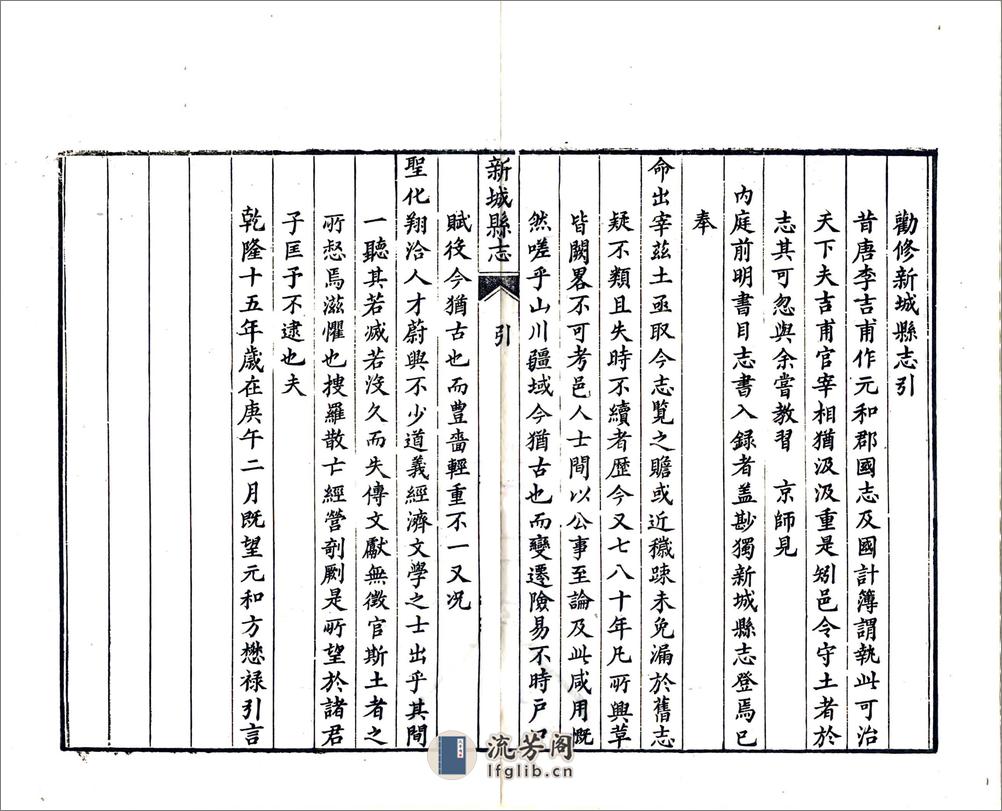 勸修新城縣志引
昔唐李吉甫作元和郡國志及國計簿謂執此可治
天下夫吉甫官宰相猶汲汲重是矧邑令守土者於
志其可忽與余嘗教習　京師見
內庭前明書目志書入録者盖尠獨新城縣志登焉已
奉
命出宰茲土亟取今志覧之贍或近穢踈未免漏於舊志
疑不類且失時不續者歷今又七八十年凡所興草
皆闕畧不可考邑人士間以公事至論及此咸用慨
然嗟乎山川疆域今猶古也而變遷險易不時戶口
新城縣志
引
賦役今猶古也而豊嗇輕重不一又况
聖化翔洽人才蔚興不少道義經濟文學之士出乎其間
一聽其若滅若沒久而失傳文獻無徵官斯土者之
所愸焉滋懼也搜羅散亡經營剞劂是所望於諸君
子匡予不逮也夫
乾隆十五年歲在庚午二月既望元和方懋禄引言
流芳阁
lfglib.cn